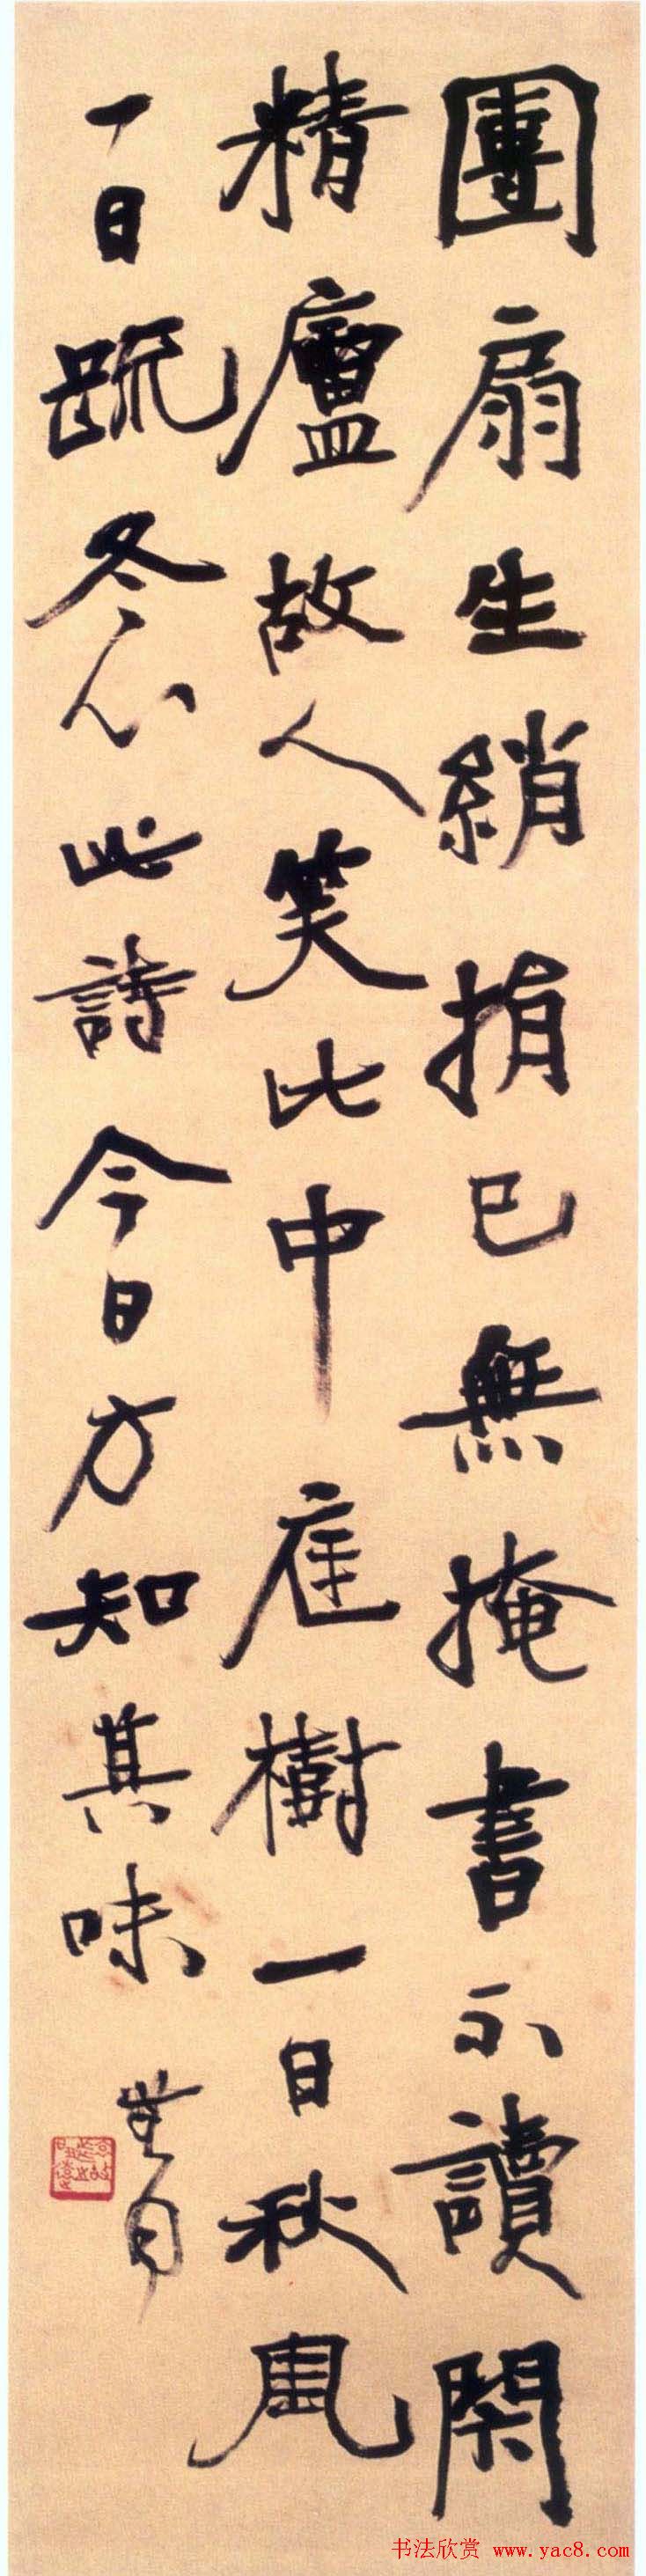 團扇生綃捐已無掩書不讀閑
精廬故人笑比中庭樹一日秋風
一日疏冬心此詩今日方知其味
书法欣赏 www.yac8.com